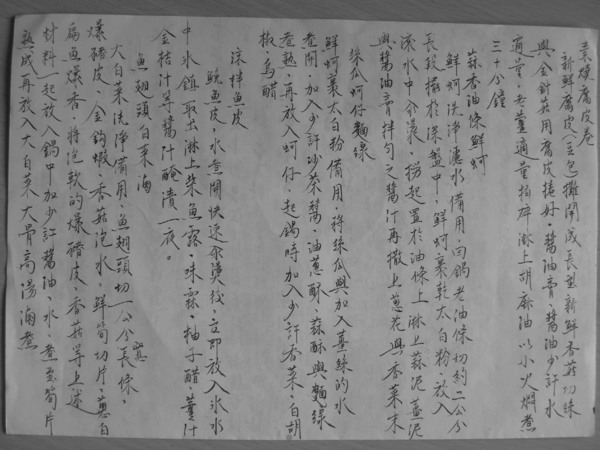 素燒腐皮卷
新鮮腐皮(豆包攤開成長型新鮮香菇切絲
與金針菇用腐皮捲好,醬油膏,醬油少許水
適量,老薑適量拍碎淋上胡麻油以小火燜煮
三十分鐘
蒜香油條鮮蚵
鮮蚵洗淨瀝水備用,回鍋老油條切約二公分
長段擺於深盤中,鮮蚵裹乾太白粉,放入
滾水中汆燙,撈起置於油條上淋上蒜泥薑泥
與醬油膏拌勻之醬汁再撒上蔥花與香菜末
絲瓜蚵仔麵線
鮮蚵裹太白粉備用,將絲瓜與加入薑絲的水
煮開,加入少許沙茶醬,油蔥酥,蒜酥與麵線
煮熟,再放入蚵仔,起鍋時加入少許香菜,白胡
椒,烏醋
涼拌魚皮
鮸魚皮,水煮開快速汆燙後,立即放入冰水
中冰鎮取出淋上柴魚露,味霖,柚子醋,薑汁
金桔汁等醬汁醃漬一夜。
魚翅頭白菜滷
大白菜洗淨備用,魚翅頭切一公分寬長條,
爆豬皮,金鉤蝦,香菇泡水,鮮筍切片,蔥白
扁魚爆香,將泡軟的爆豬皮,香菇等上述
材料一起放入鍋中加少許醬油,水,煮至筍片
熟成再放入大白菜大骨高湯滷煮